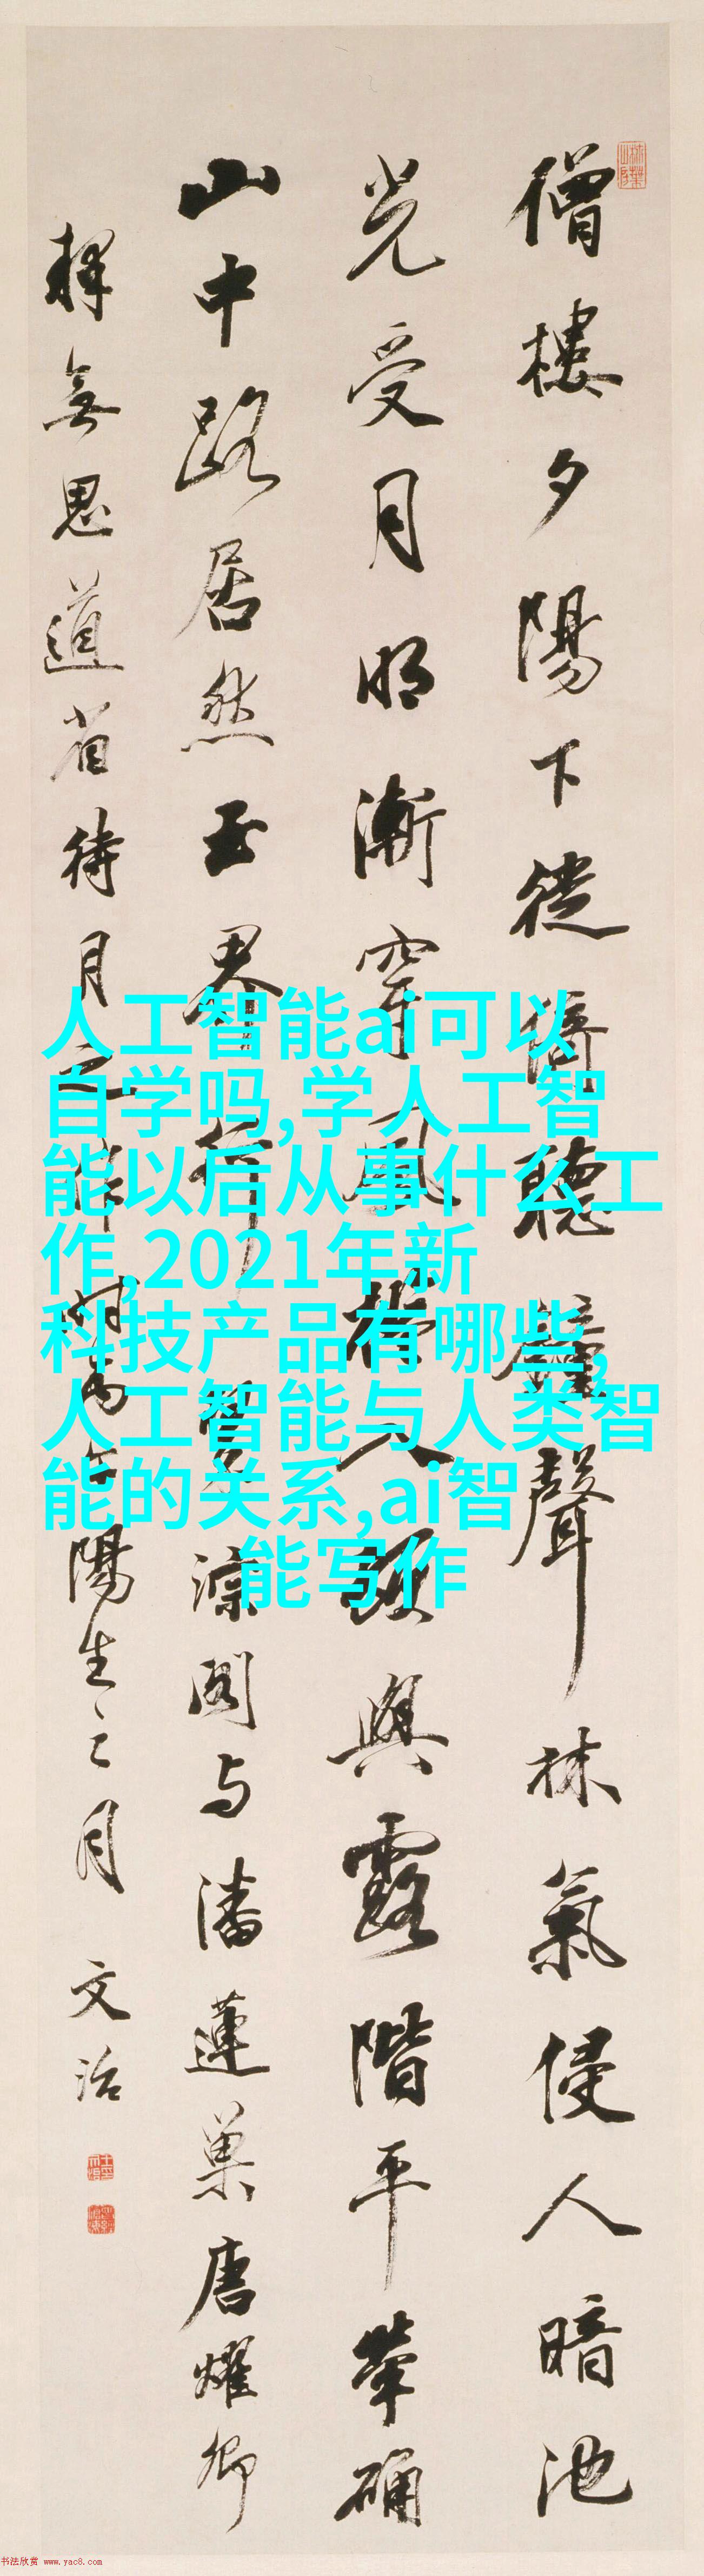 僧樓夕陽下徙倚聽鐘聲林氣侵人暗池
光受月明漸穿風樹入頓與露階平葷确
山中路居然玉界行
淙閣与潘蓮巢唐耀卿
擇無思道省待月之作時為
陽生之月 文治
人工智能ai可以
自学吗,学人工智
能以后从事什么工
作,2021年新
科技产品有哪些,
人工智能与人类智
能的关系,ai智
能写作
书法欣赏 www.yac8.com